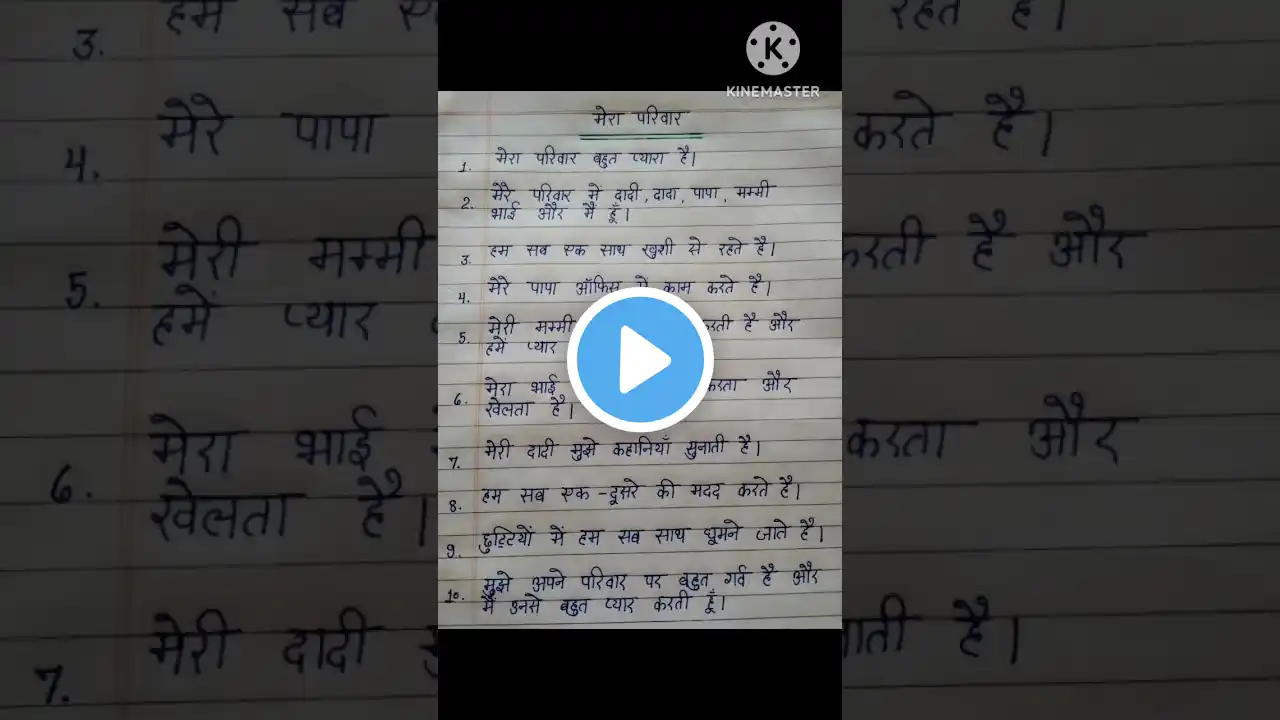 KINEMASTER
मेरा परिवार
1. मेरा परिवार बहुत प्यारा है।
2. मेरे परिवार में दादी, दादा, पापा, मम्मी
भाई और मैं हूँ।
3. हम सब एक साथ खुशी से रहते है।
4. मेरे पापा ऑफिस में काम करते है।
5. मेरी मम्मी करती है और
हमें प्यार
6. मेरा भाई करता और
खेलता है।
7. मेरी दादी मुझे कहानियाँ सुनाती है।
8. हम सब एक-दूसरे की मदद करते है।
9. छुट्टियों में हम सब साथ घूमने जाते है।
10. मुझे अपने परिवार पर बहुत गर्व है और
मैं उनसे बहुत प्यार करती हूँ।